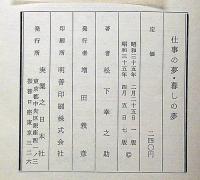 仕事の夢・暮しの夢
定価 二四〇円
昭和三十五年二月二十五日 一版
昭和三十五年四月五日 七版
著者 松下幸之助
発行者 増田義彦
印刷所 明善印刷株式会社
発行所 実業之日本社
東京都中央区銀座西一ノ三
振替口座東京三二六